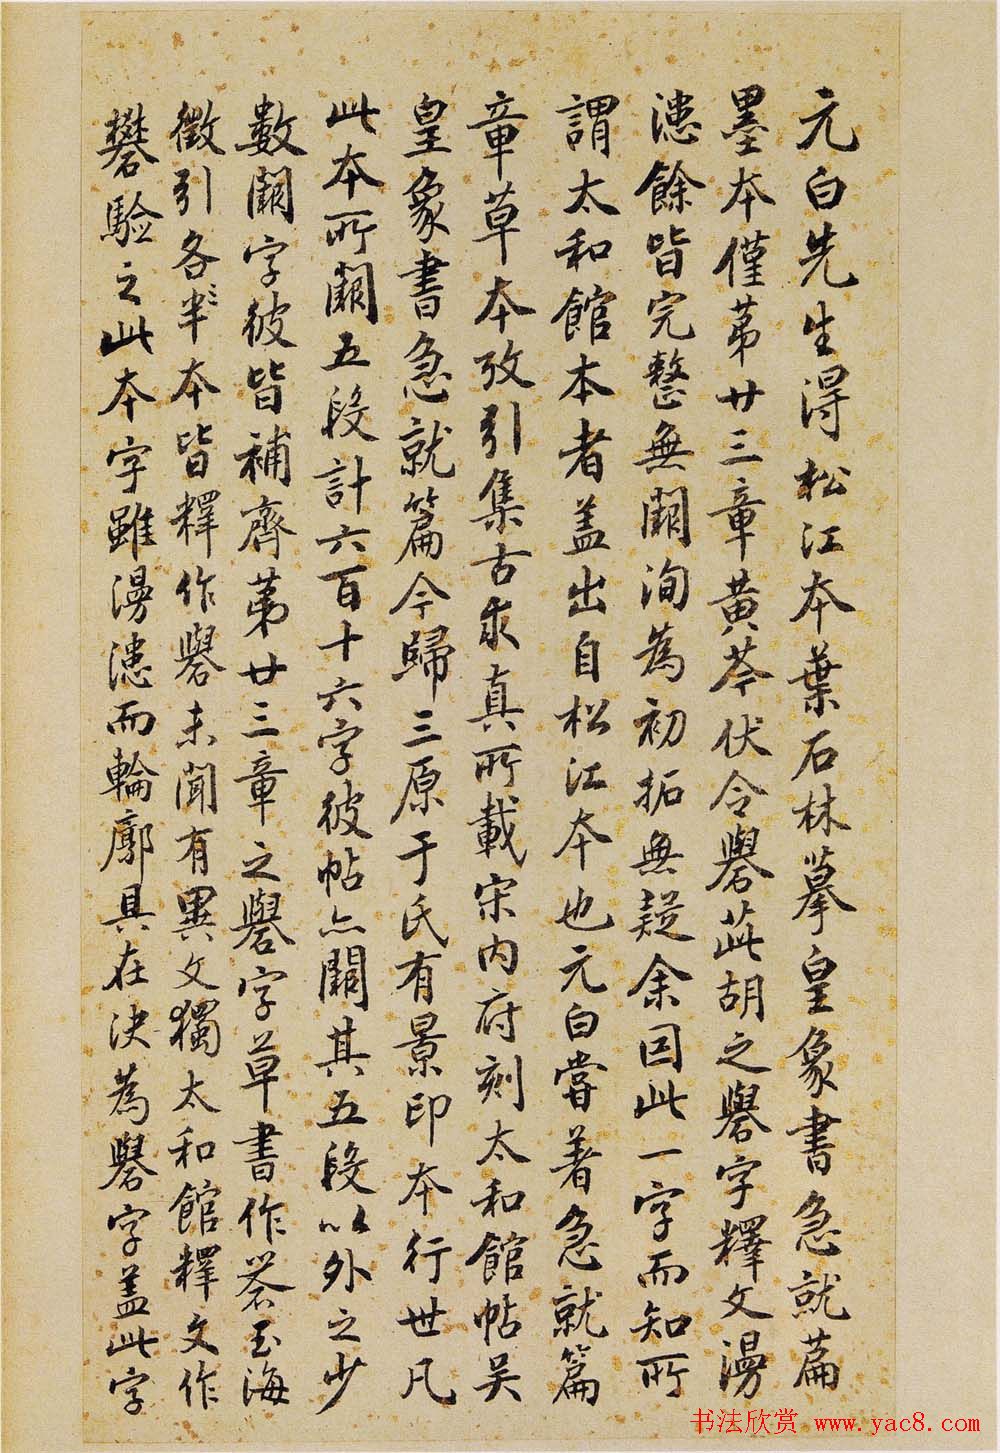 元白先生得松江本葉石林摹皇象書急就篇
墨本僅苐廿三章黄芩伏令礜茈胡之礜字釋文漫
漶餘皆完整無闕洵為初拓無疑余因此一字而知所
謂太和館本者盖出自松江本也元白嘗著急就篇
章草本攷引集古求真所載宋内府刻太和館帖吴
皇象書急就篇今歸三原于氏有景印本行世凡
此本所闕五段計六百十六字彼帖亦闕其五段以外之少
數闕字彼皆補齊苐廿三章之礜字草書作玉海
徵引各半本皆釋作礜未聞有異文獨太和館釋文作
礬驗之此本字雖漫漶而輪廓具在決為礜字盖此字
书法欣赏 www.yac8.com